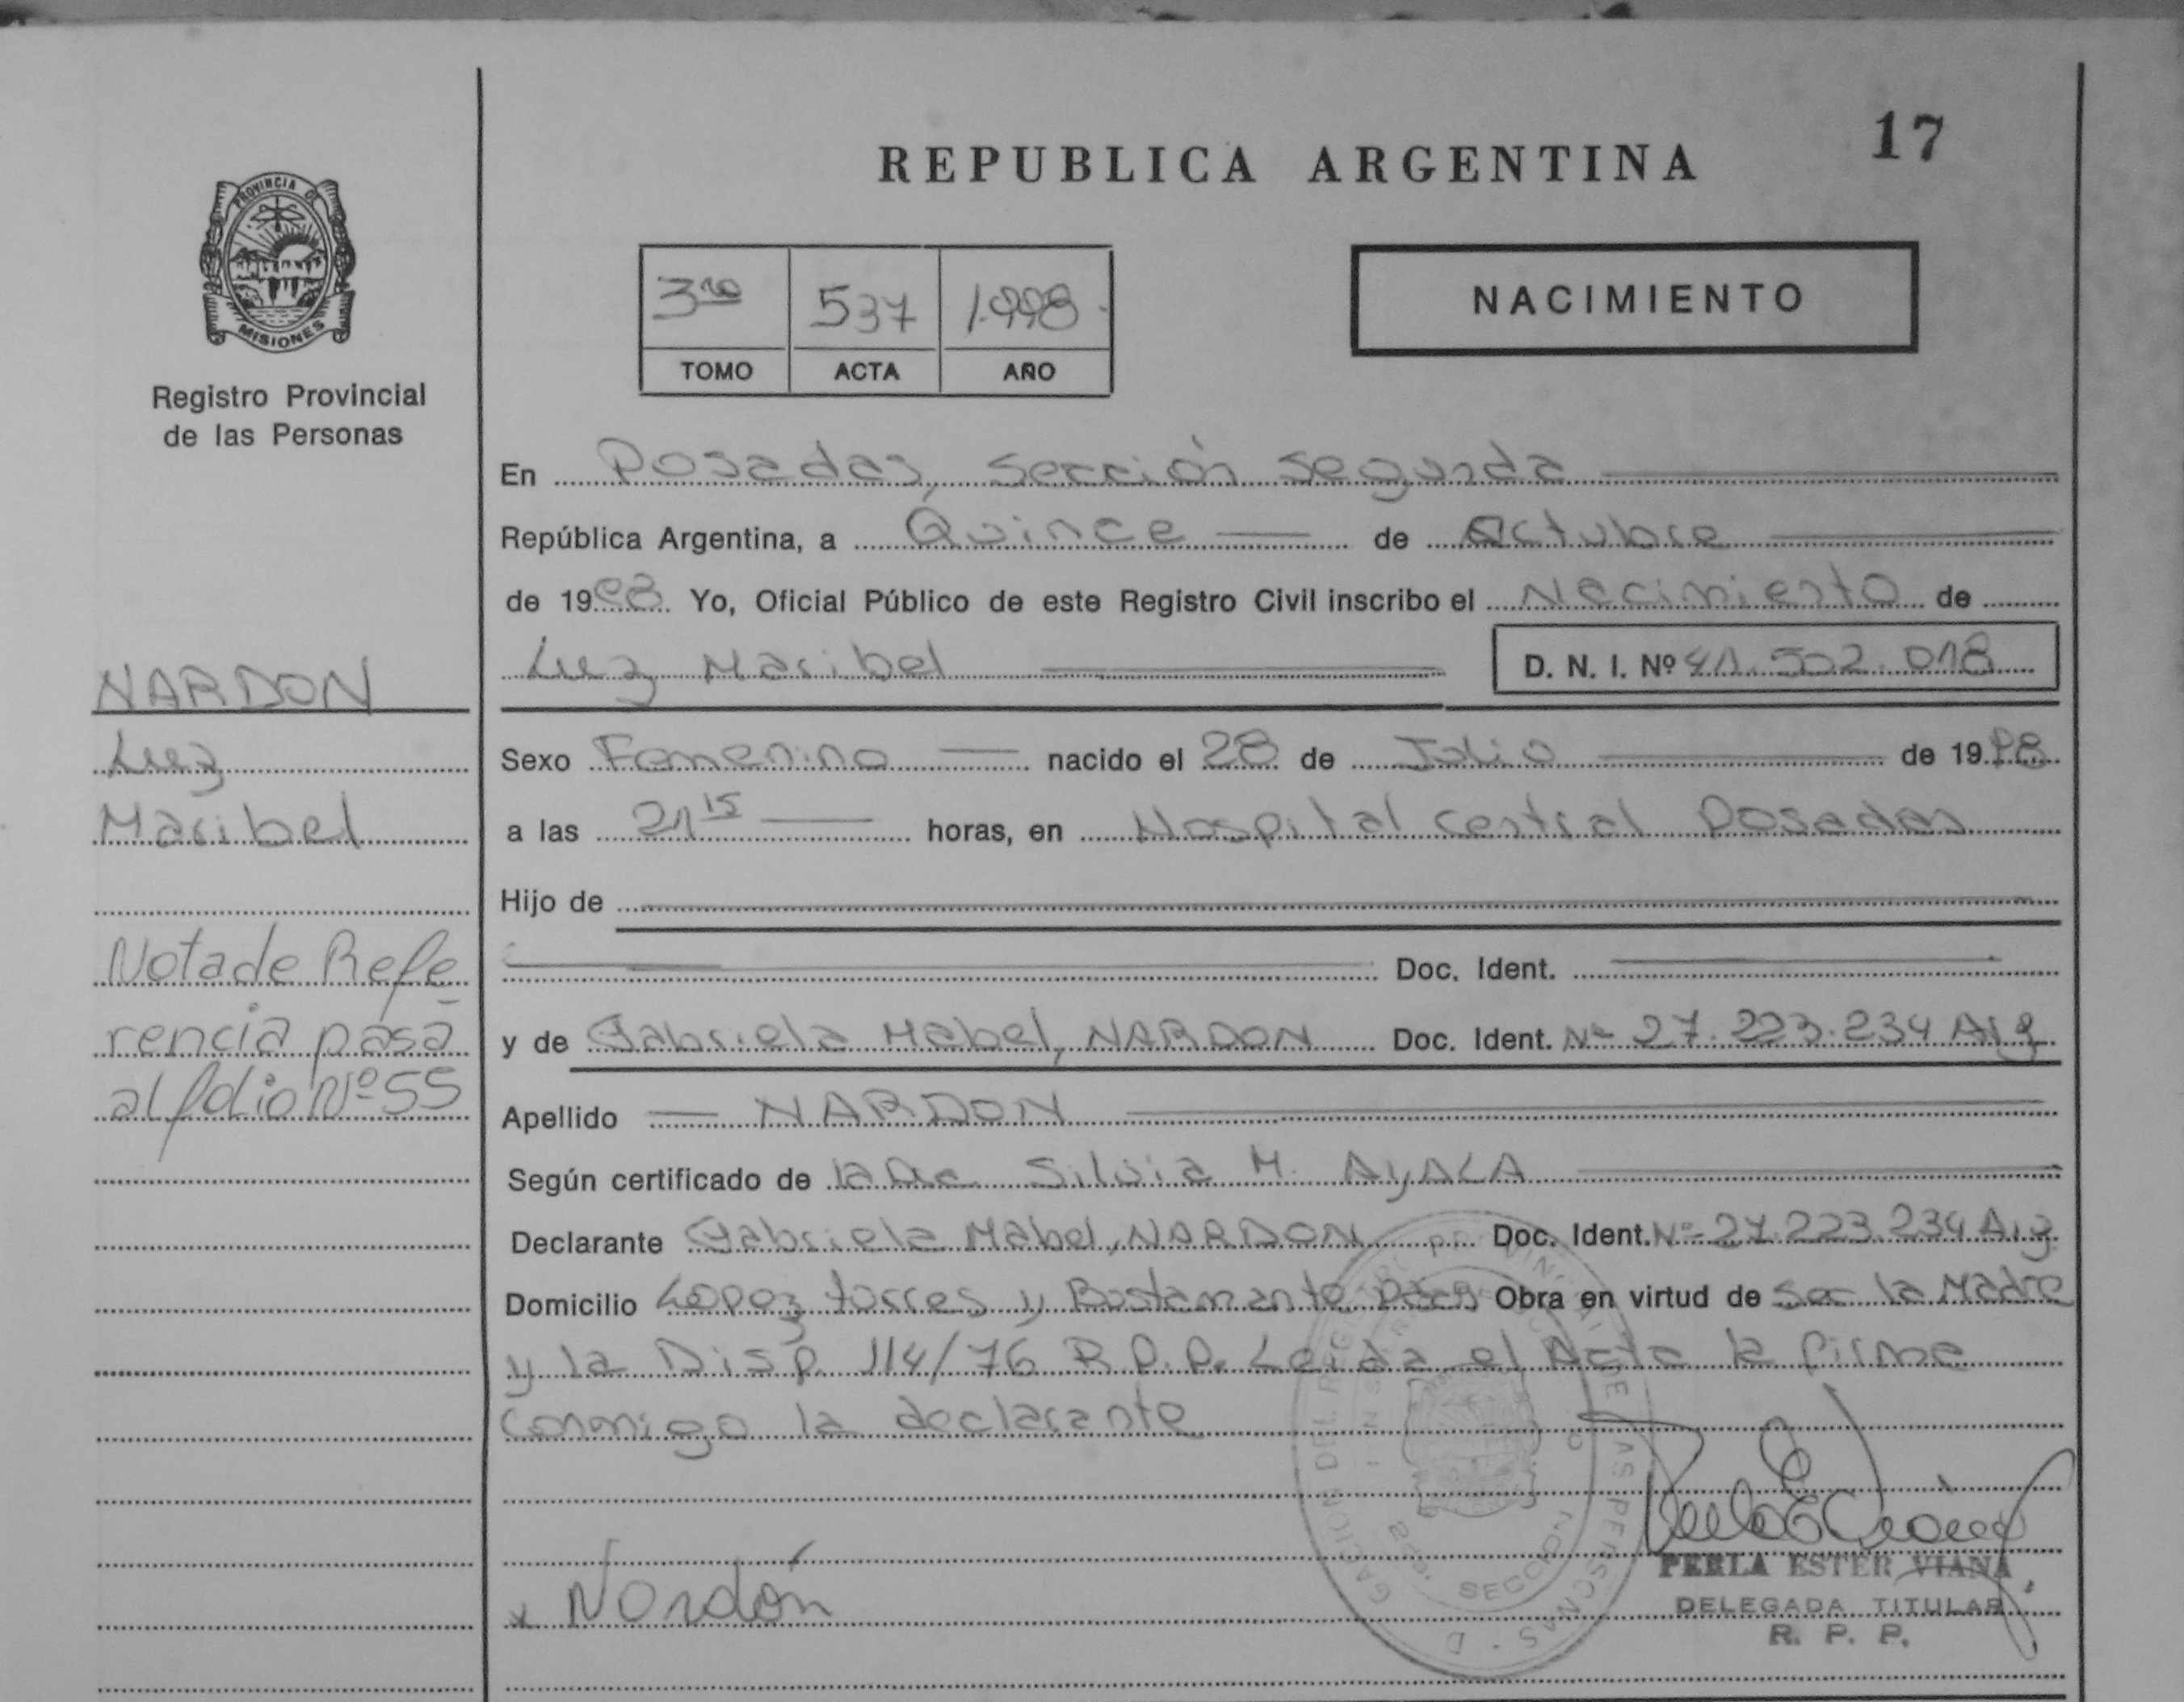 REPUBLICA ARGENTINA
17
PROVINCIA D
MISIONES
Registro Provincial
de las Personas
3ro 537 1.998
TOMO ACTA AÑO
NACIMIENTO
En Posadas, sección segunda
República Argentina, a Quince de Octubre
de 1998 Yo, Oficial Público de este Registro Civil inscribo el Nacimiento de
Luz Maribel D. N. I. Nº 41.502.018
NARDON
Luz
Maribel
Nota de Refe
rencia pasa
al folio Nº 55
Sexo Femenino nacido el 28 de Julio de 1998
a las 21 15 horas, en Hospital Central Posadas
Hijo de
Doc. Ident.
y de Gabriela Mabel, NARDON Doc. Ident. Nº 27.223.234 Arg
Apellido NARDON
Según certificado de la Dra Silvia M. AyALA
Declarante Gabriela Mabel, NARDON Doc. Ident. Nº 27.223.234 Arg
Domicilio Lopez torres y Bustamante Obra en virtud de Ser la Madre
y la Disp. 114/76 R.P.P. Leida el Acta la firma
conmigo la declarante
x Nardón
PERLA ESTER VIANA
DELEGADA TITULAR
R. P. P.